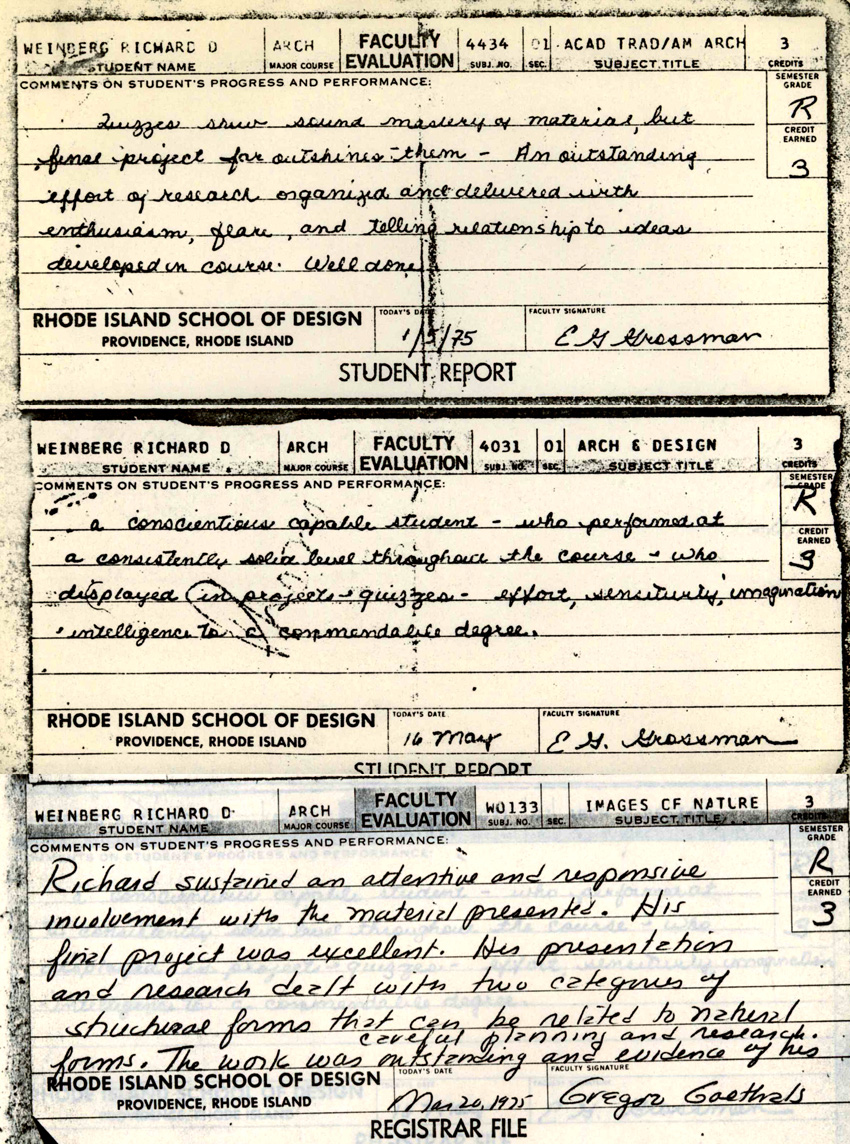 WEINBERG RICHARD D ARCH FACULTY EVALUATION 4434 01 ACAD TRAD/AM ARCH 3
STUDENT NAME MAJOR COURSE SUBJ. NO. SEC. SUBJECT TITLE CREDITS
COMMENTS ON STUDENT'S PROGRESS AND PERFORMANCE:
SEMESTER GRADE
R
CREDIT EARNED
3
Quizzes show sound mastery of material, but
final project far outshines them - An outstanding
effort of research organized and delivered with
enthusiasm, flare, and telling relationship to ideas
developed in course. Well done
RHODE ISLAND SCHOOL OF DESIGN
PROVIDENCE, RHODE ISLAND
TODAY'S DATE
1/5/75
FACULTY SIGNATURE
E G Grossman
STUDENT REPORT
WEINBERG RICHARD D ARCH FACULTY EVALUATION 4031 01 ARCH & DESIGN 3
STUDENT NAME MAJOR COURSE SUBJ. NO. SEC. SUBJECT TITLE CREDITS
COMMENTS ON STUDENT'S PROGRESS AND PERFORMANCE:
SEMESTER GRADE
R
CREDIT EARNED
3
a conscientious capable student - who performed at
a consistently solid level throughout the course - who
displayed in projects - quizzes - effort, sensitivity, imagination
intelligence to a commendable degree.
RHODE ISLAND SCHOOL OF DESIGN
PROVIDENCE, RHODE ISLAND
TODAY'S DATE
16 May
FACULTY SIGNATURE
E. G. Grossman
STUDENT REPORT
WEINBERG RICHARD D. ARCH FACULTY EVALUATION W0133 IMAGES OF NATURE 3
STUDENT NAME MAJOR COURSE SUBJ. NO. SEC. SUBJECT TITLE CREDITS
COMMENTS ON STUDENT'S PROGRESS AND PERFORMANCE:
SEMESTER GRADE
R
CREDIT EARNED
3
Richard sustained an attentive and responsive
involvement with the material presented. His
final project was excellent. His presentation
and research dealt with two categories of
structural forms that can be related to natural
forms. The work was outstanding and evidence of his
careful planning and research.
RHODE ISLAND SCHOOL OF DESIGN
PROVIDENCE, RHODE ISLAND
TODAY'S DATE
Mar 20, 1975
FACULTY SIGNATURE
Gregor Goethals
REGISTRAR FILE